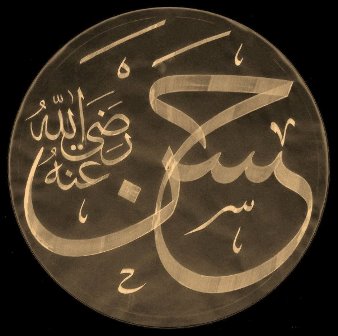 حسن
رضي الله عنه